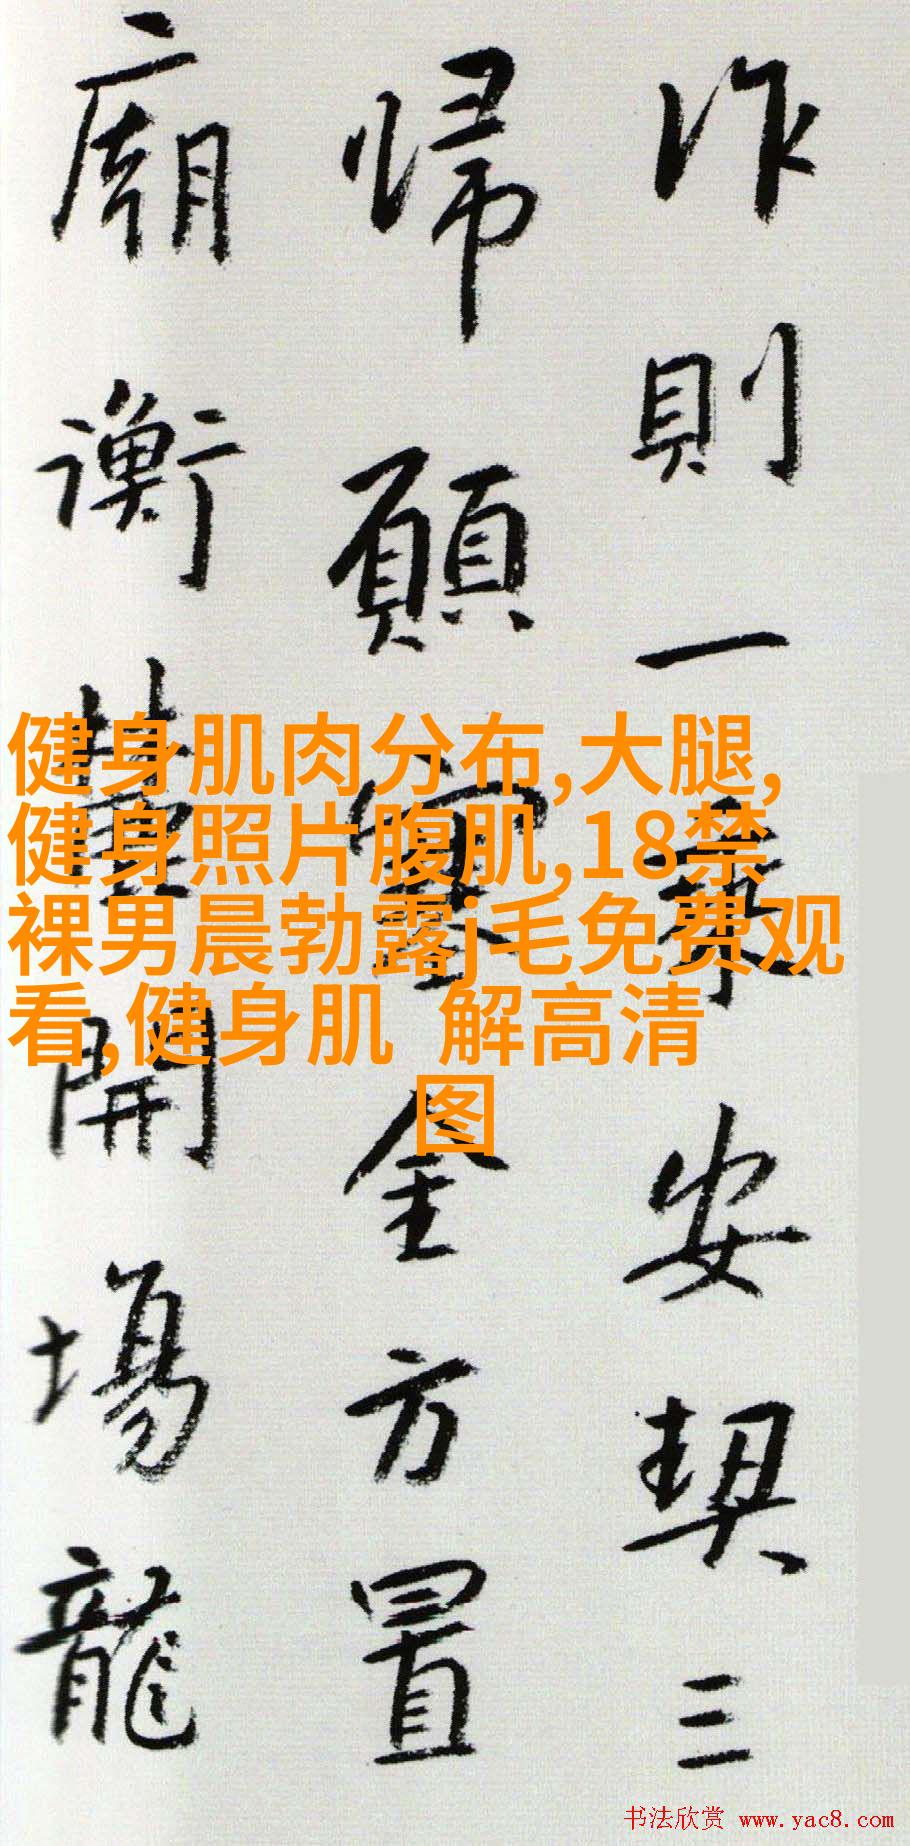 作則一安契三
帰願金方置
廟衡開場龍
健身肌肉分布,大腿,
健身照片腹肌,18禁
裸男晨勃露j毛免费观
看,健身肌 解高清
图
书法欣赏 www.yac8.com